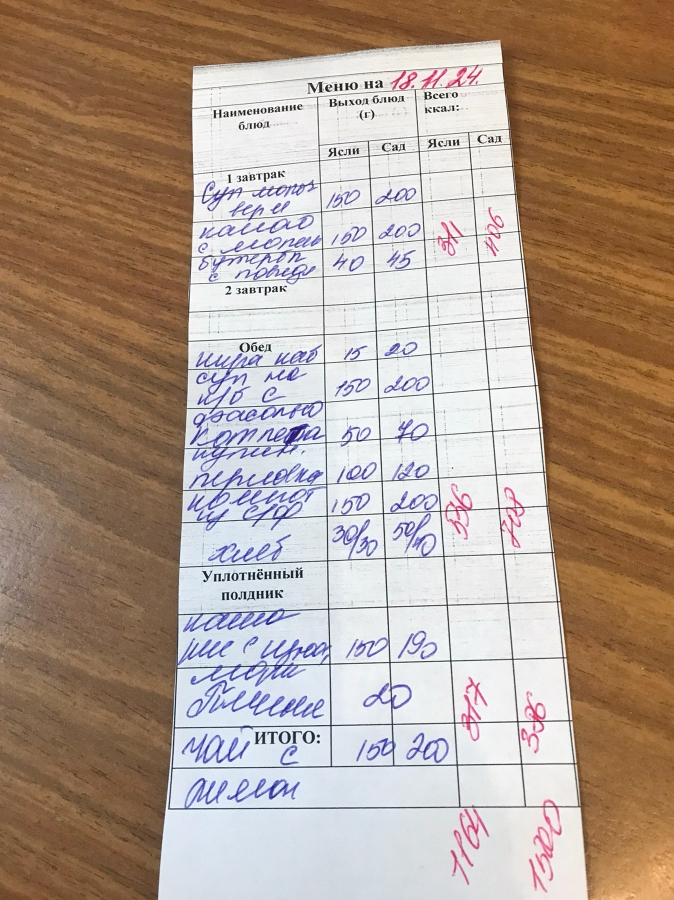 Меню на 18.11.24.
Наименование блюд Выход блюд (г) Всего ккал:
Ясли Сад Ясли Сад
1 завтрак
Суп молоч
верм 150 200
какао
с молоком 150 200 311 406
бутерб 40 45
с повидл
2 завтрак
Обед
икра каб 15 20
суп на
к/б с 150 200
фасолью
котлета 50 70
курин.
перловка 100 120
компот 150 200 536 708
из с/ф
хлеб 30/30 50/40
Уплотнённый полдник
каша
рис с 150 190
морк
Печенье 20 317 386
ИТОГО:
чай с 150 200
лимон
1164 1500